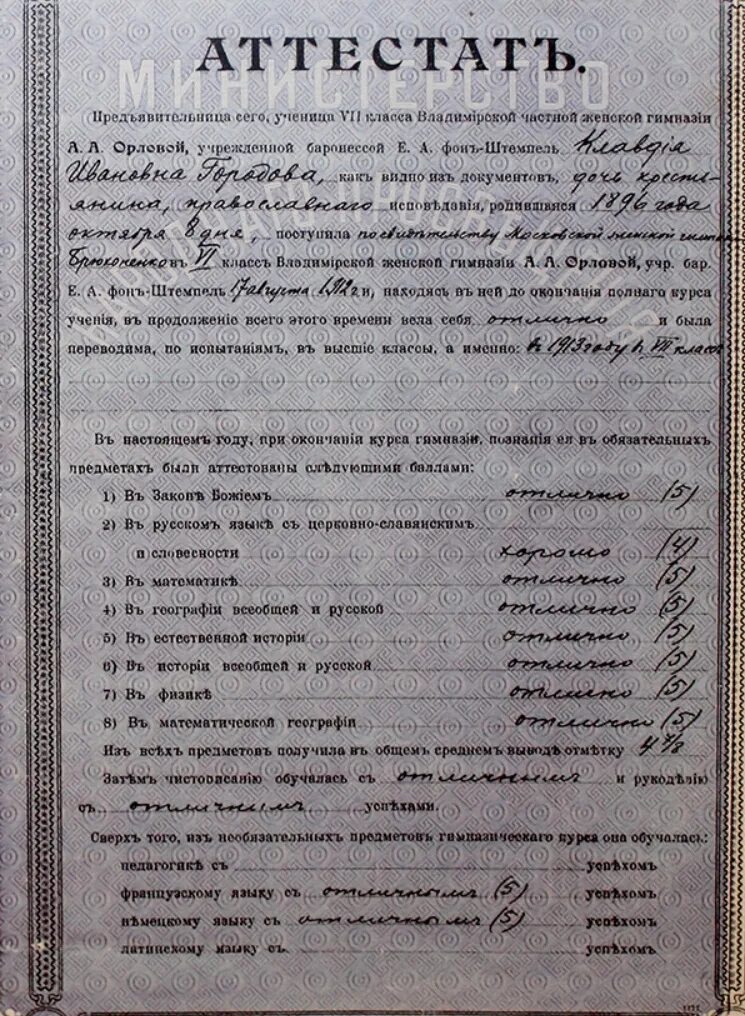 МИНИСТЕРСТВО
АТТЕСТАТЪ.
Предъявительница сего, ученица VII класса Владимірской частной женской гимназіи
А. А. Орловой, учрежденной баронессой Е. А. фонъ-Штемпель Клавдія
Ивановна Городова, какъ видно изъ документовъ, дочь кресть-
янина, православнаго исповѣданія, родившаяся 1896 года
октября 8 дня, поступила по свидѣтельству Московской женской
Брюхоненко въ VI классъ Владимірской женской гимназіи А. А. Орловой, учр. бар.
Е. А. фонъ-Штемпель 17 августа 1912 г. и, находясь въ ней до окончанія полнаго курса
ученія, въ продолженіе всего этого времени вела себя отлично и была
переводима, по испытаніямъ, въ высшіе классы, а именно: въ 1913 году въ VII классъ
Въ настоящемъ году, при окончаніи курса гимназіи, познанія ея въ обязательныхъ
предметахъ были аттестованы слѣдующими баллами:
1) Въ Законѣ Божіемъ отлично (5)
2) Въ русскомъ языкѣ съ церковно-славянскимъ
и словесности хорошо (4)
3) Въ математикѣ отлично (5)
4) Въ географіи всеобщей и русской отлично (5)
5) Въ естественной исторіи отлично (5)
6) Въ исторіи всеобщей и русской отлично (5)
7) Въ физикѣ отлично (5)
8) Въ математической географіи отлично (5)
Изъ всѣхъ предметовъ получила въ общемъ среднемъ выводѣ отмѣтку 4 7/8
Затѣмъ чистописанію обучалась съ отличнымъ и рукодѣлію
съ отличнымъ успѣхами.
Сверхъ того, изъ необязательныхъ предметовъ гимназическаго курса она обучалась:
педагогикѣ съ успѣхомъ
французскому языку съ отличнымъ (5) успѣхомъ
нѣмецкому языку съ отличнымъ (5) успѣхомъ
латинскому языку съ успѣхомъ